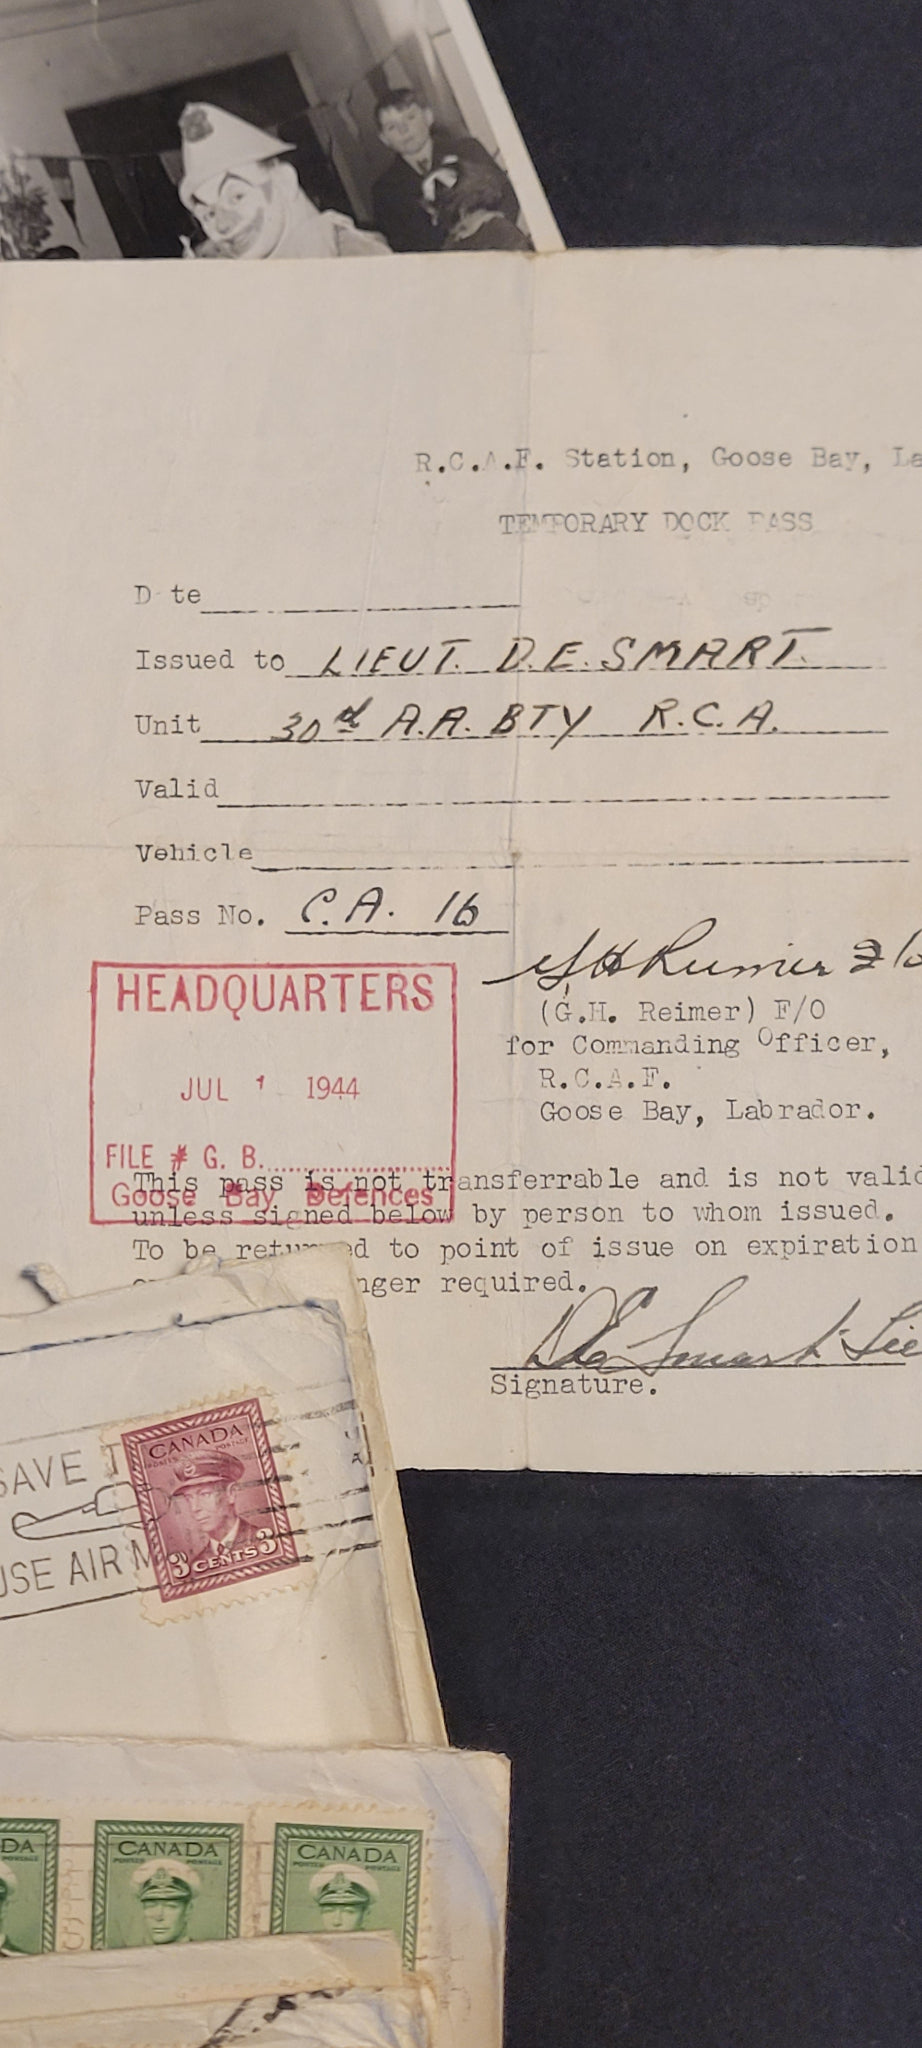 R.C.A.F. Station, Goose Bay, La
TEMPORARY DOCK PASS
D te
Issued to LIEUT. D.E. SMART.
Unit 30rd A.A. BTY R.C.A.
Valid
Vehicle
Pass No. C.A. 16
GH Reimer F/O
(G.H. Reimer) F/O
for Commanding Officer,
R.C.A.F.
Goose Bay, Labrador.
HEADQUARTERS
JUL 1 1944
FILE # G. B.
Goose Bay Defences
This pass is not transferrable and is not valid
unless signed below by person to whom issued.
To be returned to point of issue on expiration
nger required.
DE Smart. Lie
Signature.
SAVE T
USE AIR M
CANADA
POSTES POSTAGE
3 CENTS 3
DA
POSTAGE
CANADA
POSTES POSTAGE
CANADA
POSTES POSTAGE